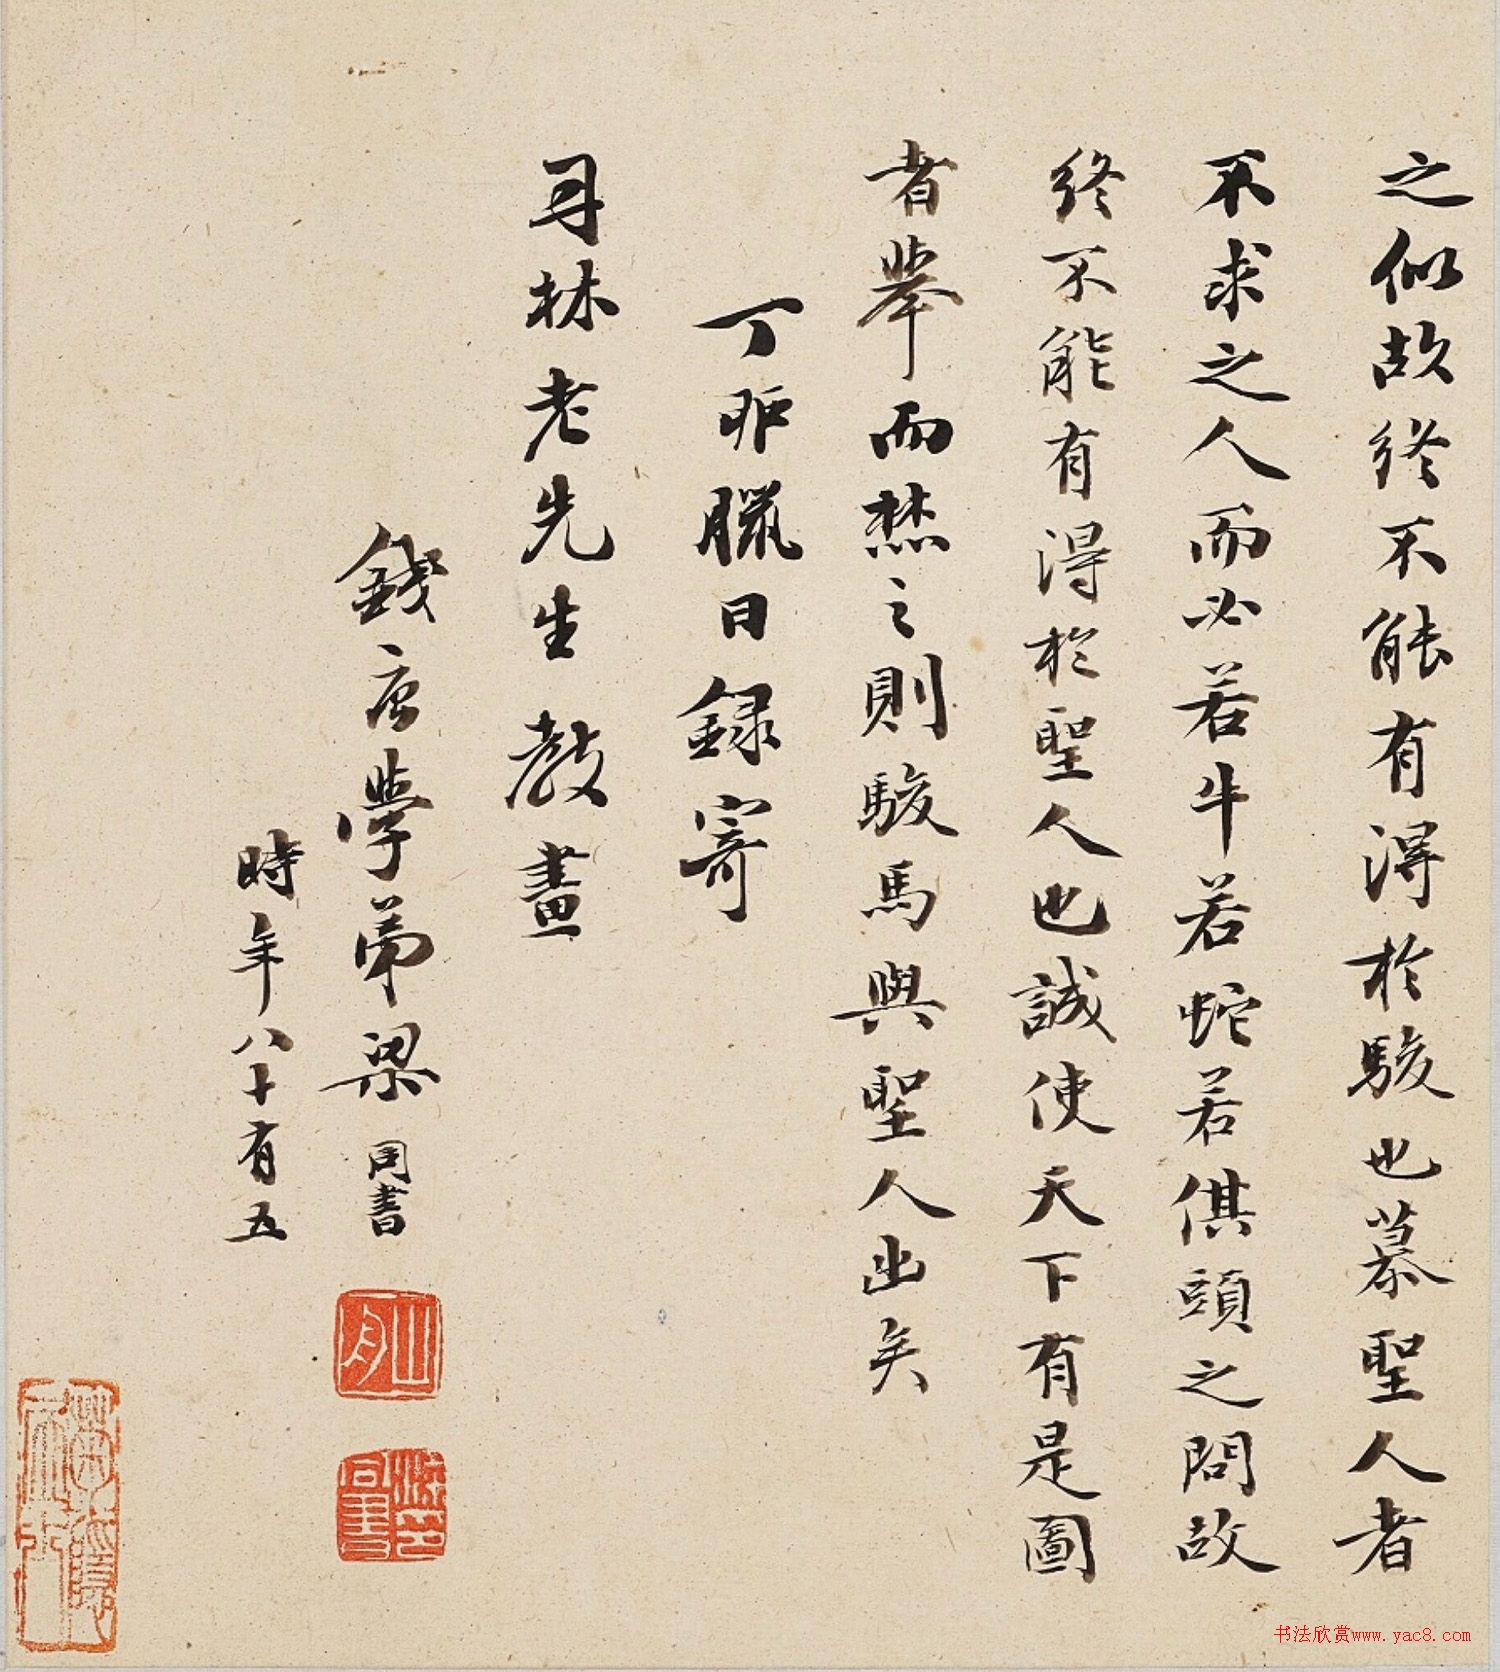 之似故終不能有得於駿也慕聖人者
不求之人而必若牛若蛇若倛頭之問故
終不能有得於聖人也誠使天下有是圖
者舉而焚之則駿馬與聖人出矣
丁卯臘日錄寄
林老先生教畫
錢唐學弟梁同書
時年八十有五
山舟
梁印同書
书法欣赏www.yac8.com